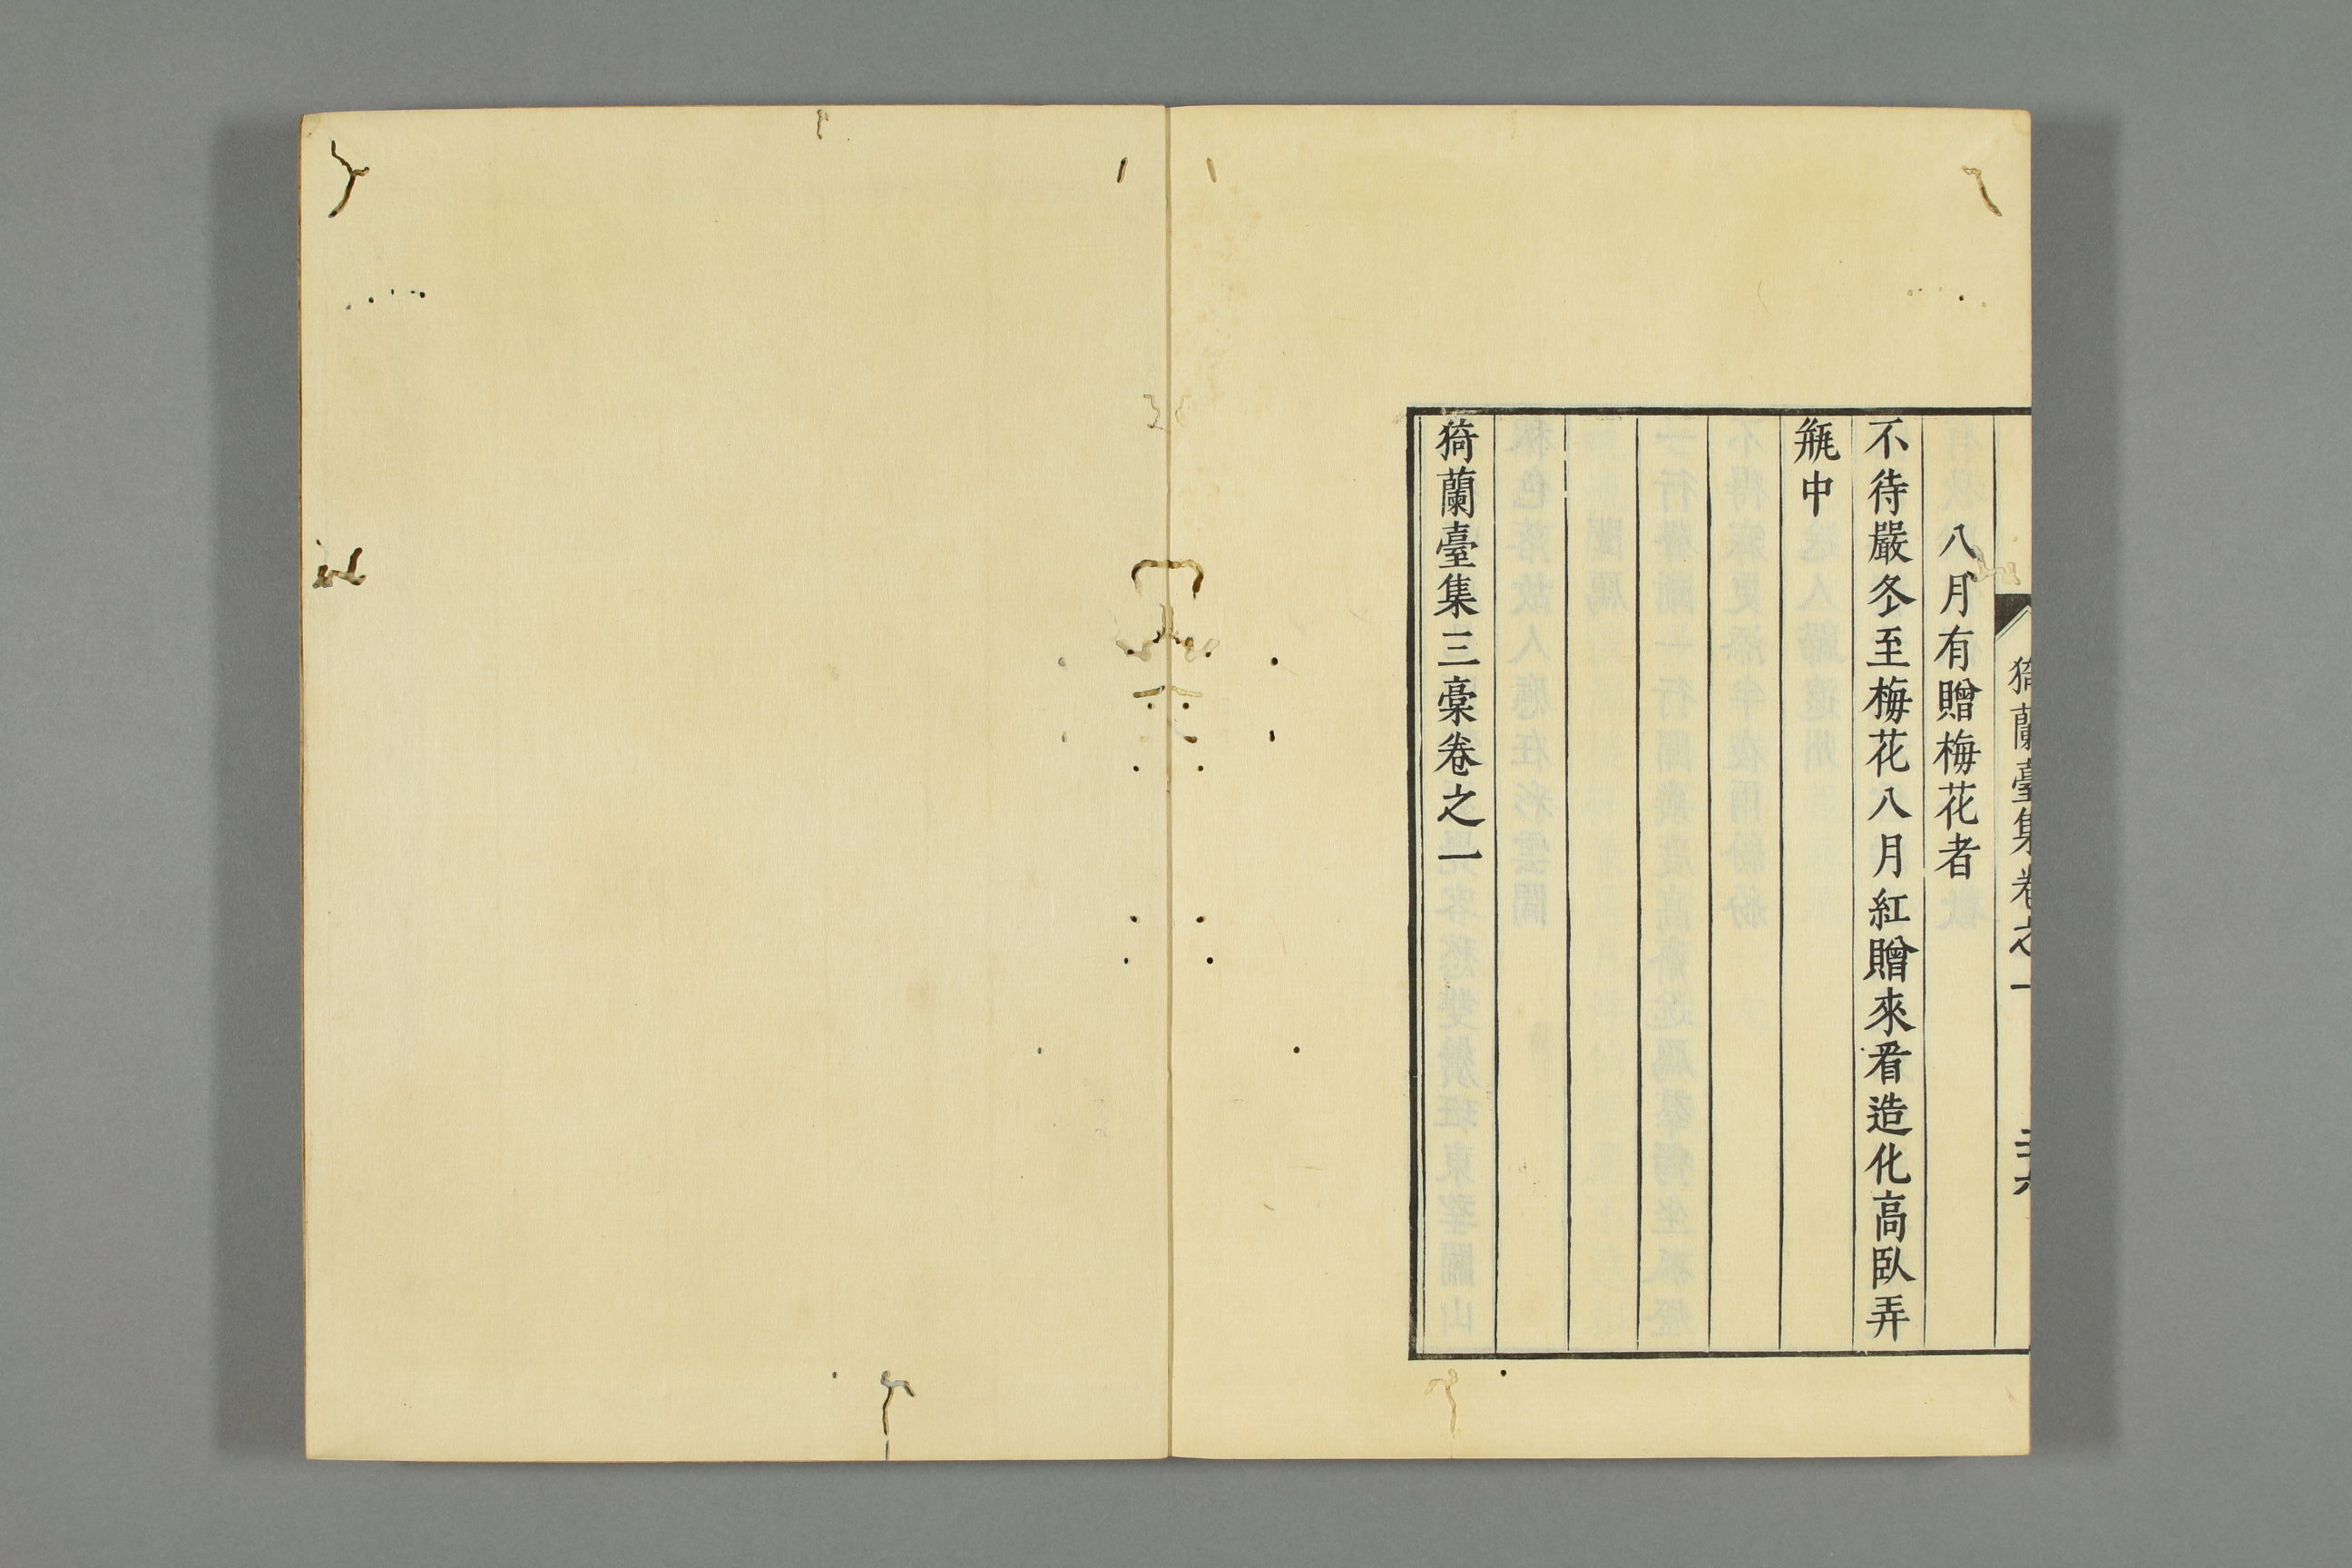 八月有贈梅花者
不待嚴冬至梅花八月紅贈來看造化高臥弄
瓶中
猗蘭臺集三稾卷之一
猗蘭臺集卷之一